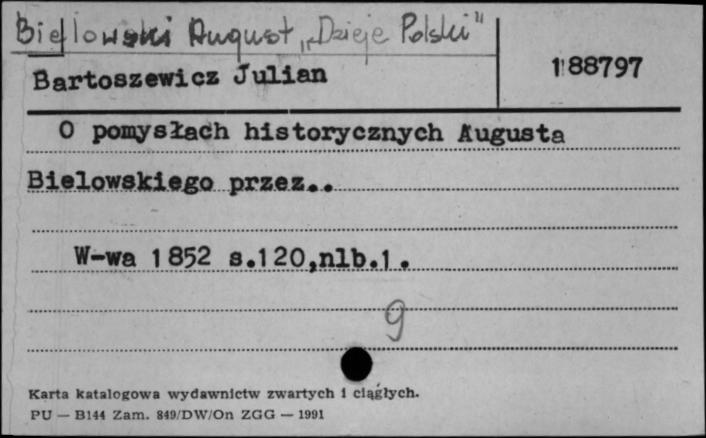 Bielowski August „Dzieje Polski"
Bartoszewicz Julian
188797
O pomysłach historycznych Augusta
Bielowskiego przez..
W-wa 1852 s.120,nlb.1.
9
Karta katalogowa wydawnictw zwartych i ciągłych.
PU — B144 Zam. 849/DW/On ZGG — 1991